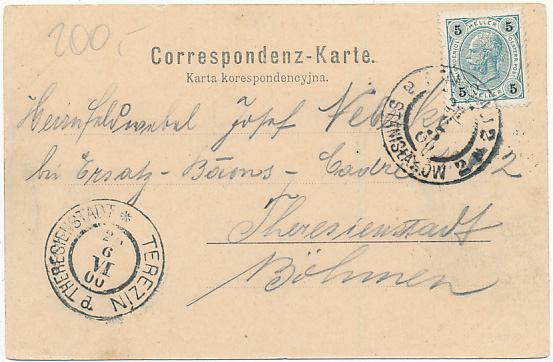 200,-
Correspondenz-Karte.
Karta korespondencyjna.
5 HELLER 5
5 HELLER 5
STANISŁAWÓW 2
Josef
bei Ersatz-Baons-Cadre 2
Theresienstadt
Böhmen
THERESIENSTADT * TEREZÍN
6
VI
00